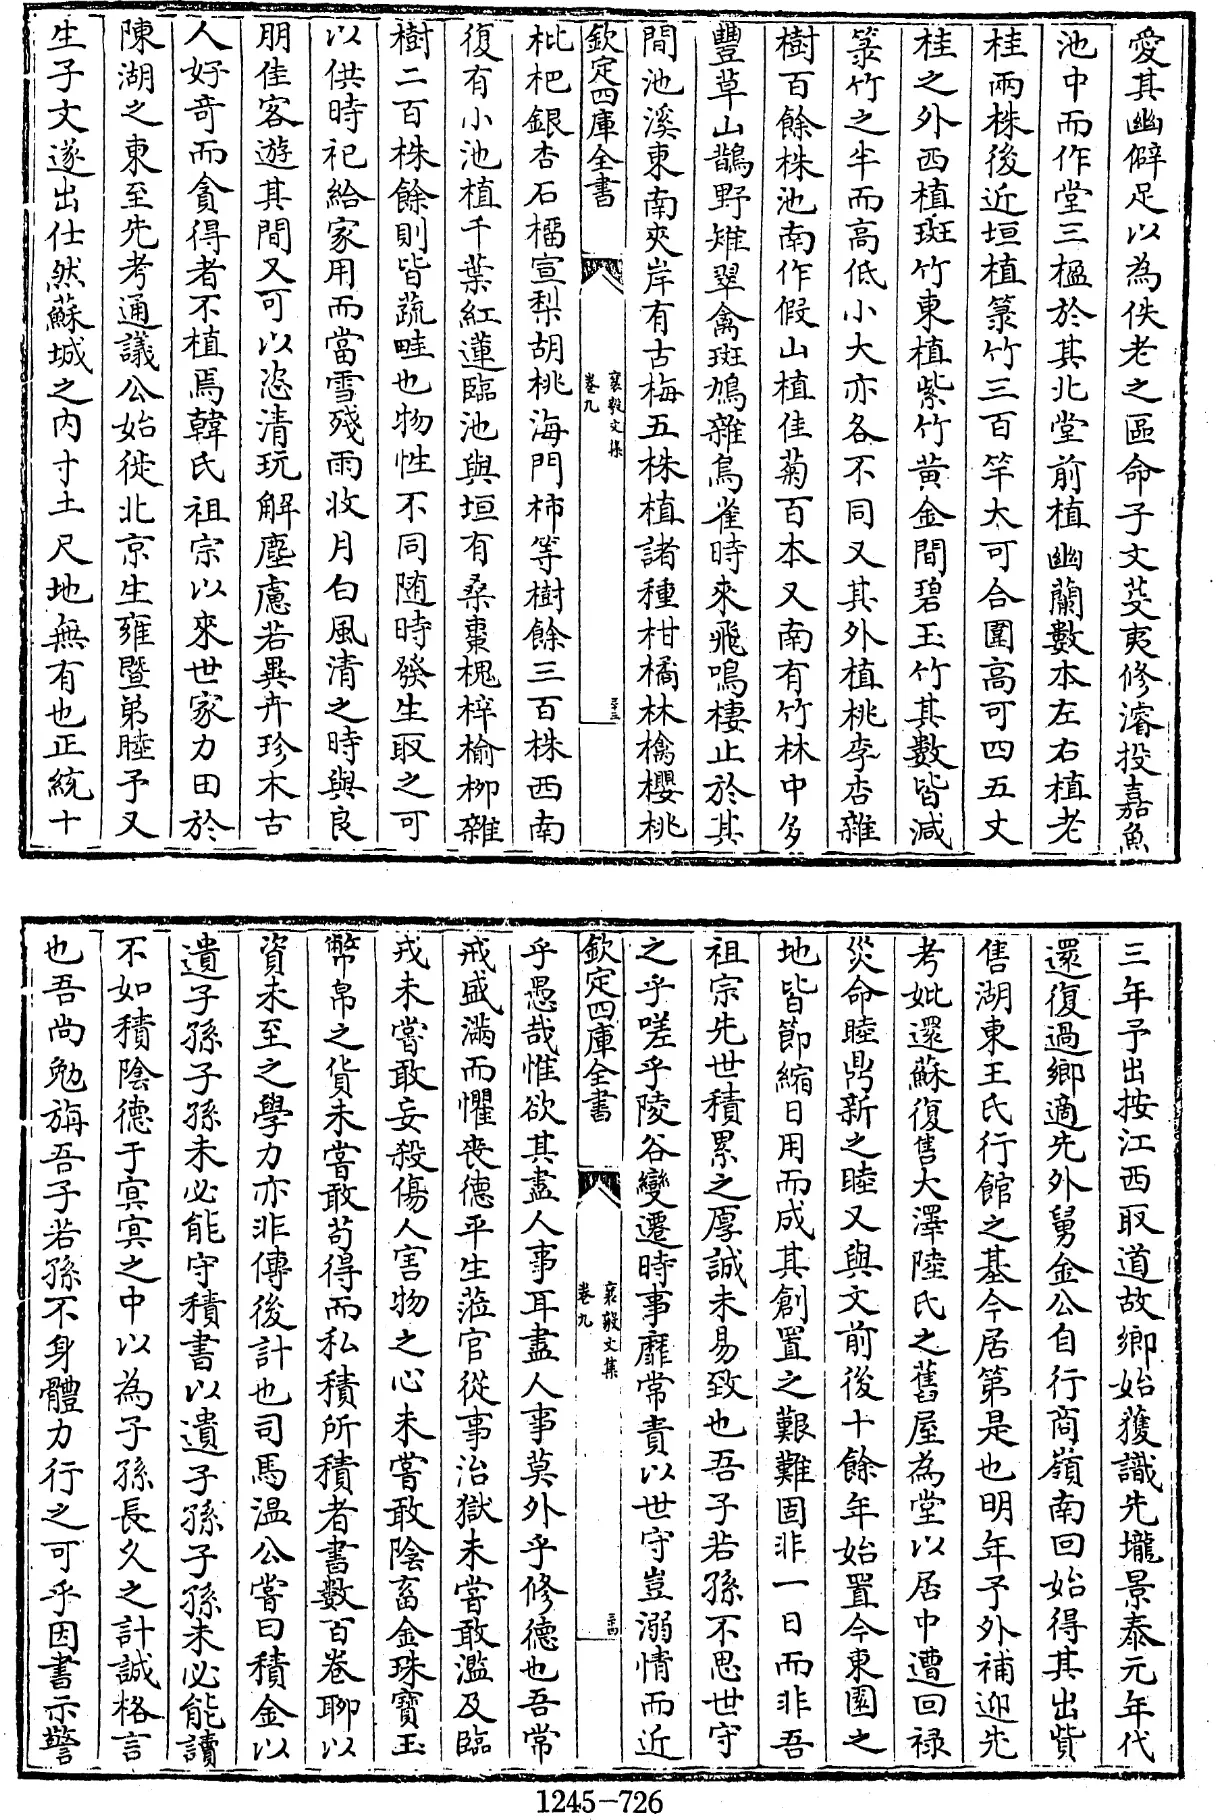 愛其幽僻足以為佚老之區命子文芟夷修濬投嘉魚
池中而作堂三楹於其北堂前植幽蘭數本左右植老
桂兩株後近垣植菉竹三百竿大可合圍高可四五丈
桂之外西植斑竹東植紫竹黄金間碧玉竹其數皆減
菉竹之半而高低小大亦各不同又其外植桃李杏雜
樹百餘株池南作假山植佳菊百本又南有竹林中多
豐草山鵲野雉翠禽斑鳩雜鳥雀時來飛鳴棲止於其
間池溪東南夾岸有古梅五株植諸種柑橘林檎櫻桃
欽定四庫全書
襄毅文集
卷九
二十三
枇杷銀杏石榴宣梨胡桃海門柿等樹餘三百株西南
復有小池植千葉紅蓮臨池與垣有桑棗槐梓榆柳雜
樹二百株餘則皆蔬畦也物性不同随時發生取之可
以供時祀給家用而當雪殘雨收月白風清之時與良
朋佳客遊其間又可以恣清玩解塵慮若異卉珍木古
人好奇而貪得者不植焉韓氏祖宗以來世家力田於
陳湖之東至先考通議公始徙北京生雍暨弟睦予又
生子文遂出仕然蘇城之内寸土尺地無有也正統十
三年予出按江西取道故鄉始獲識先壠景泰元年代
還復過鄉適先外舅金公自行商嶺南回始得其出貲
售湖東王氏行館之基今居第是也明年予外補迎先
考妣還蘇復售大澤陸氏之舊屋為堂以居中遭回禄
災命睦鼎新之睦又與文前後十餘年始置今東園之
地皆節縮日用而成其創置之艱難固非一日而非吾
祖宗先世積累之厚誠未易致也吾子若孫不思世守
之乎嗟乎陵谷變遷時事靡常責以世守豈溺情而近
欽定四庫全書
襄毅文集
卷九
二十四
乎愚哉惟欲其盡人事耳盡人事莫外乎修德也吾常
戒盛滿而懼丧德平生蒞官從事治獄未嘗敢濫及臨
戎未嘗敢妄殺傷人害物之心未嘗敢隂畜金珠寶玉
幣帛之貨未嘗敢苟得而私積所積者書數百卷聊以
資未至之學力亦非傳後計也司馬温公嘗曰積金以
遺子孫子孫未必能守積書以遺子孫子孫未必能讀
不如積隂德于寘寘之中以為子孫長久之計誠格言
也吾尚勉旃吾子若孫不身體力行之可乎因書示警
1245-726